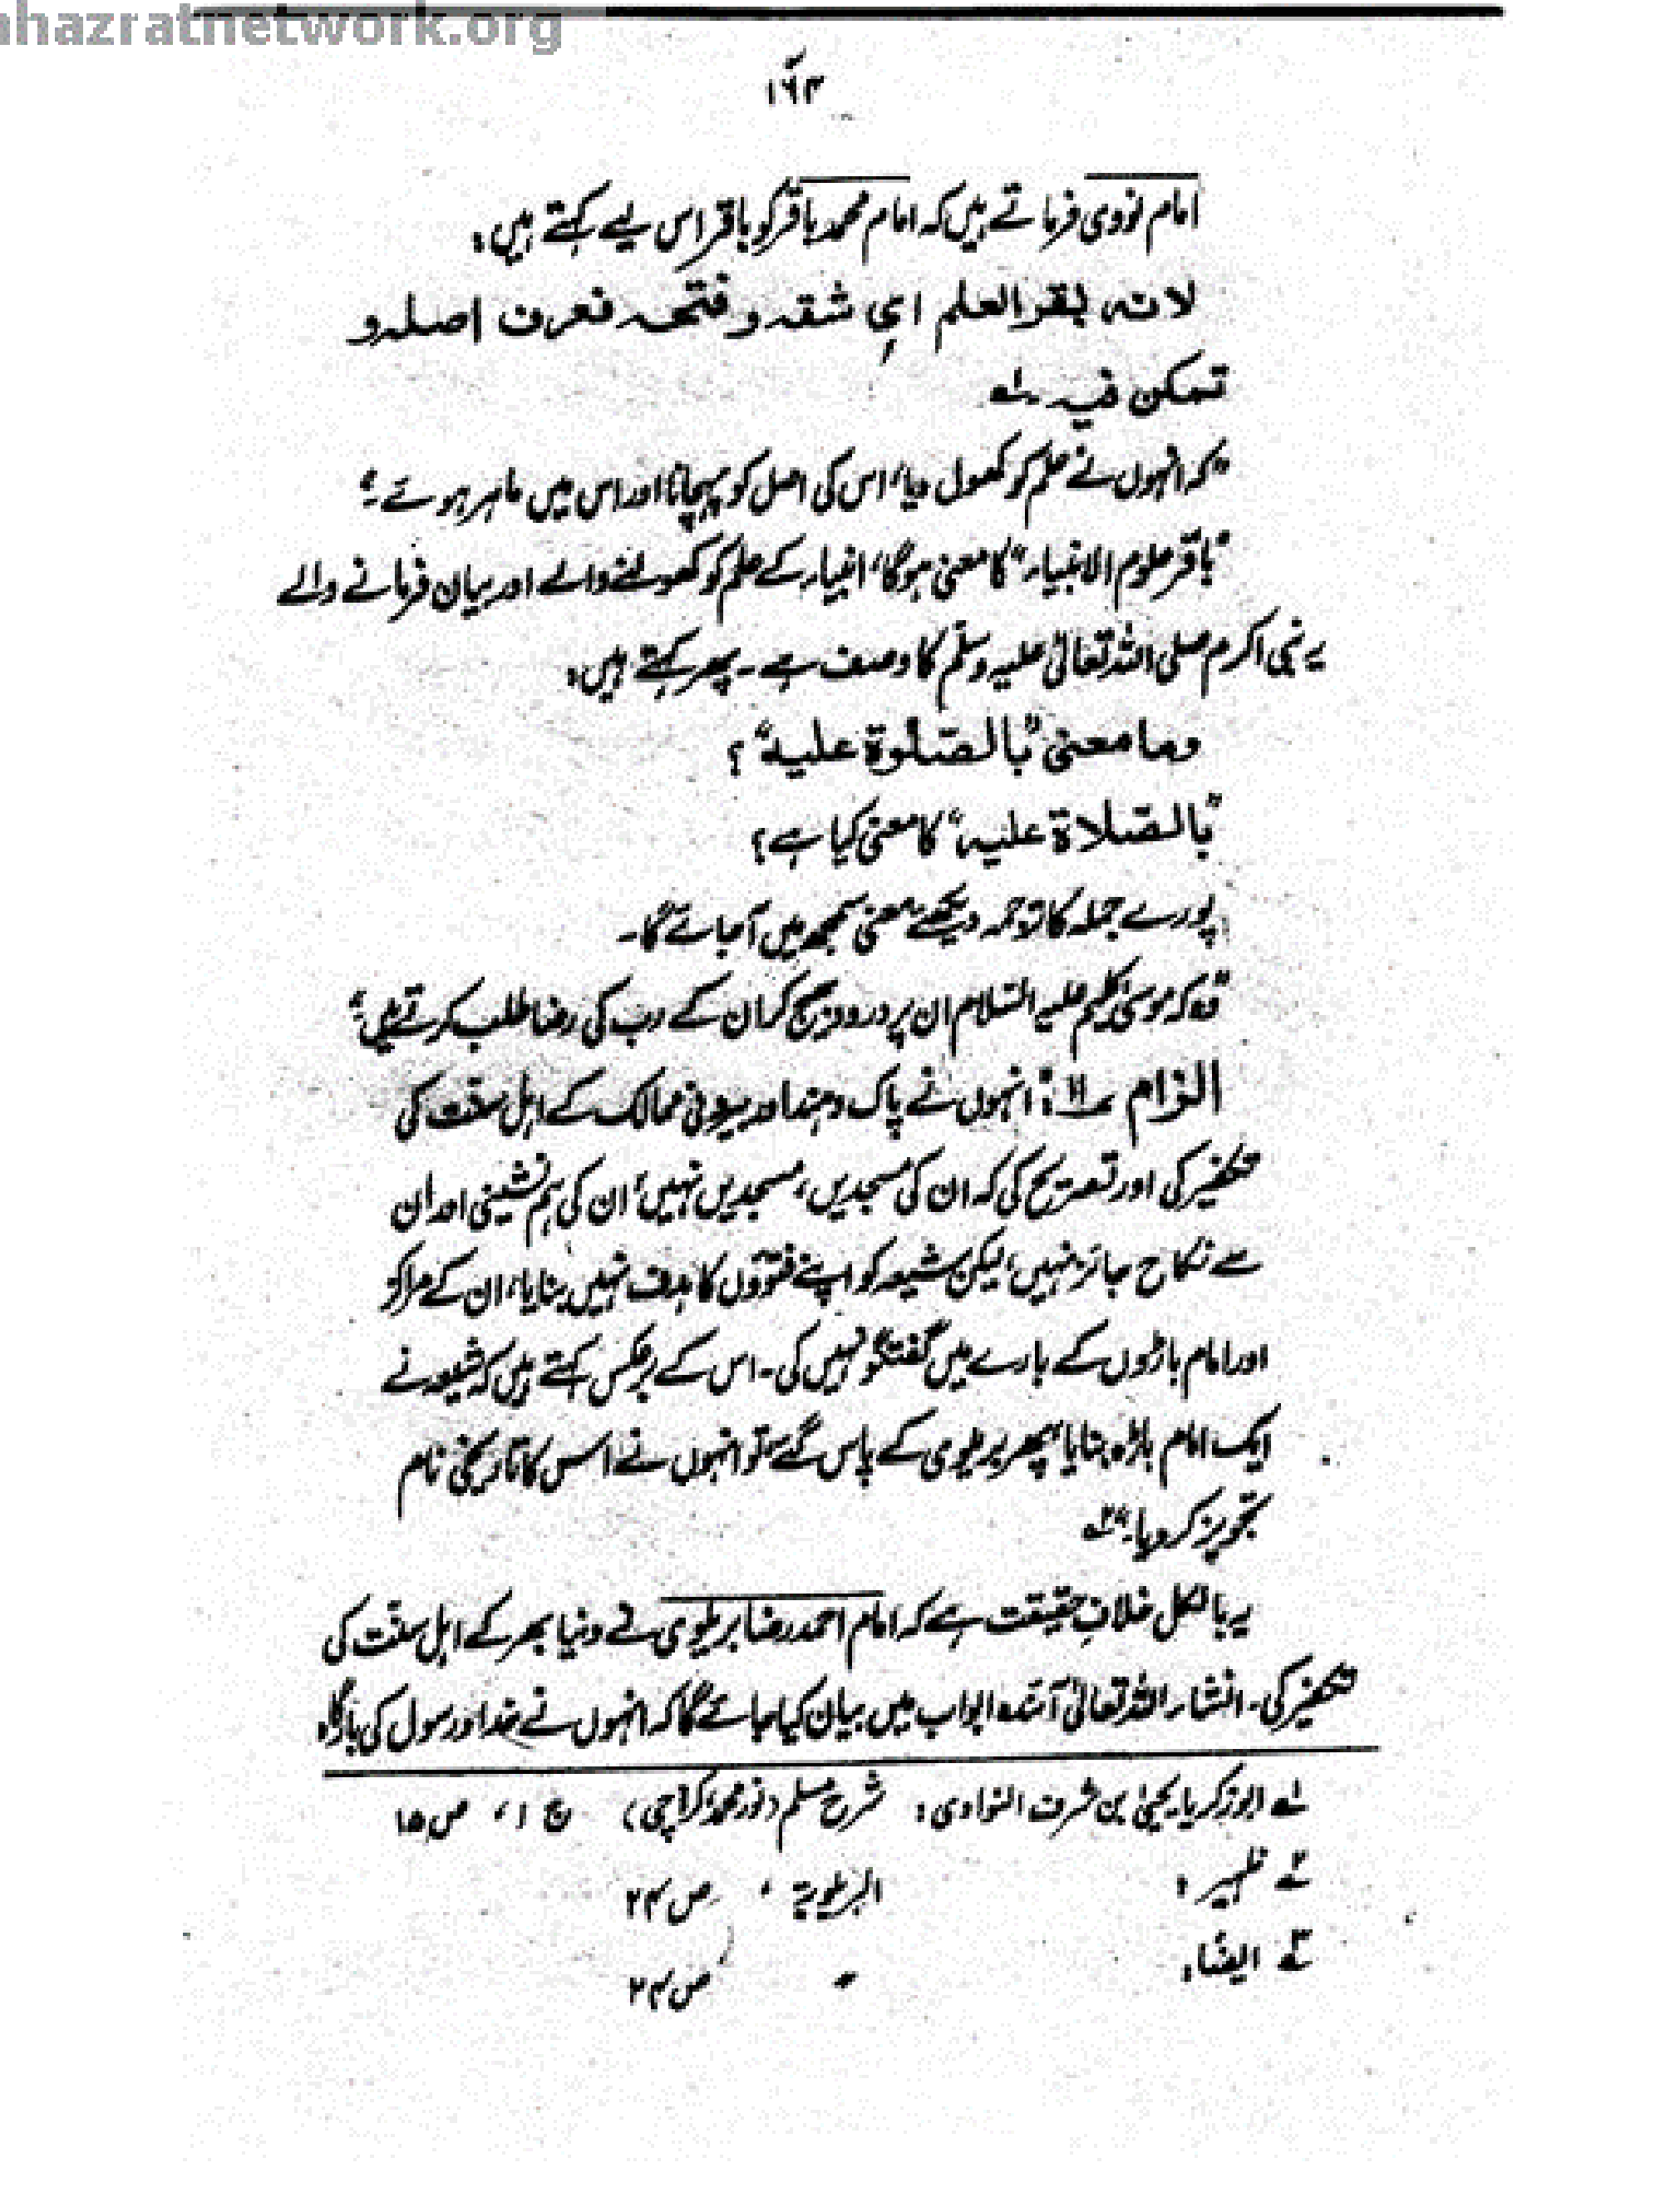 ahazratnetwork.org
۱۶۳
امام نووی فرماتے ہیں کہ امام محمد باقر کو باقر اس لیے کہتے ہیں:
لانہ بقر العلم ای شقہ و فتحہ فعرف اصلہ و
تمکن فیہ ۔لہ
"کہ انہوں نے علم کو کھول دیا، اس کی اصل کو پہچانا اور اس میں ماہر ہوئے۔"
"باقر علوم الانبیاء" کا معنی ہوگا، انبیاء کے علم کو کھولنے والے اور بیان فرمانے والے
یہ نبی اکرم صلی اللہ تعالیٰ علیہ وسلم کا وصف ہے۔ پھر کہتے ہیں:
وما معنی "بالصلوٰۃ علیہ"؟
"بالصلاۃ علیہ" کا معنی کیا ہے؟
پورے جملہ کا ترجمہ دیکھئے معنی سمجھ میں آجائے گا۔
"وہ کہ موسیٰ کلیم علیہ السلام ان پر درود بھیج کر ان کے رب کی رضا طلب کرتے ہیں"
الزام ۱۱: انہوں نے پاک و ہند اور بیرونی ممالک کے اہل سنت کی
تکفیر کی اور تصریح کی کہ ان کی مسجدیں، مسجدیں نہیں، ان کی ہم نشینی اور ان
سے نکاح جائز نہیں، لیکن شیعہ کو اپنے فتووں کا ہدف نہیں بنایا، ان کے مراکز
اور امام باڑوں کے بارے میں گفتگو نہیں کی۔ اس کے برعکس کہتے ہیں کہ شیعہ نے
ایک امام باڑہ بنایا، پھر بریلوی کے پاس گئے، تو انہوں نے اس کا تاریخی نام
تجویز کر دیا۔"
یہ بالکل خلافِ حقیقت ہے کہ امام احمد رضا بریلوی نے دنیا بھر کے اہل سنت کی
تکفیر کی۔ انشاء اللہ تعالیٰ آئندہ ابواب میں بیان کیا جائے گا کہ انہوں نے خدا و رسول کی بارگاہ
۱؎ ابو زکریا یحییٰ بن شرف النوادی: شرح مسلم (نور محمد، کراچی) ج ۱، ص ۱۵
۲؎ ظہیر: البریلویۃ، ص ۲۴
۳؎ ایضًا: " ص ۲۴